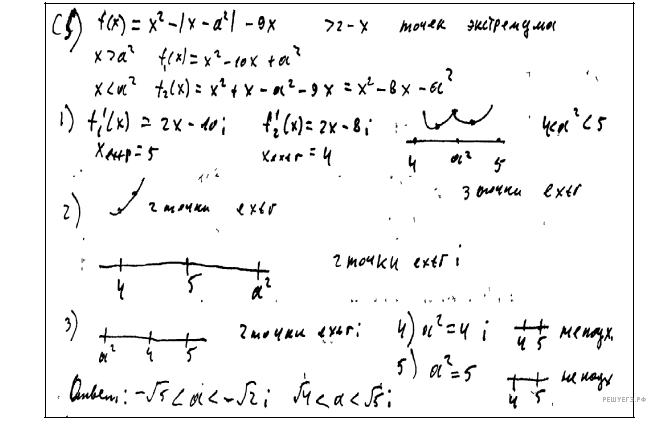 C5) f(x) = x² - |x - a²| - 9x >2-х точек экстремума
x>a² f₁(x) = x² - 10x + a²
x<a² f₂(x) = x² + x - a² - 9x = x² - 8x - a²
1) f₁'(x) = 2x - 10; f₂'(x) = 2x - 8; 4<a²<5
xэкстр = 5 xextr = 4 4 a² 5
3 точки extr
2) 2 точки extr
4 5 a² 2 точки extr;
3) a² 4 5 2 точки extr; 4) a² = 4; 4 5 не подх.
5) a² = 5 4 5 не подх
Ответ: -√5 < a < -√2; √4 < a < √5;
РЕШУЕГЭ.РФ